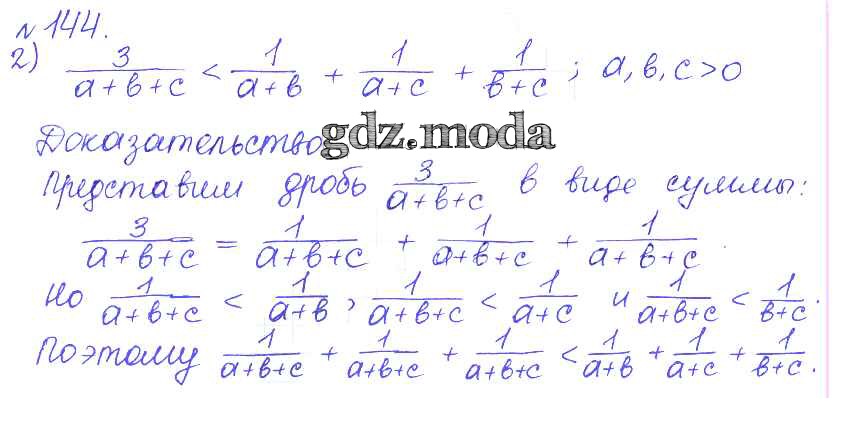 № 144.
2) 3/(a+b+c) < 1/(a+b) + 1/(a+c) + 1/(b+c) ; a, b, c > 0
Доказательство
gdz.moda
Представим дробь 3/(a+b+c) в виде суммы:
3/(a+b+c) = 1/(a+b+c) + 1/(a+b+c) + 1/(a+b+c).
Но 1/(a+b+c) < 1/(a+b), 1/(a+b+c) < 1/(a+c) и 1/(a+b+c) < 1/(b+c).
Поэтому 1/(a+b+c) + 1/(a+b+c) + 1/(a+b+c) < 1/(a+b) + 1/(a+c) + 1/(b+c).